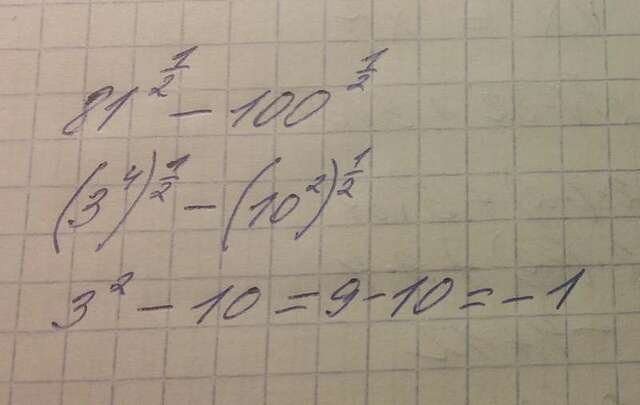 81^{\frac{1}{2}} - 100^{\frac{1}{2}}
(3^4)^{\frac{1}{2}} - (10^2)^{\frac{1}{2}}
3^2 - 10 = 9 - 10 = -1